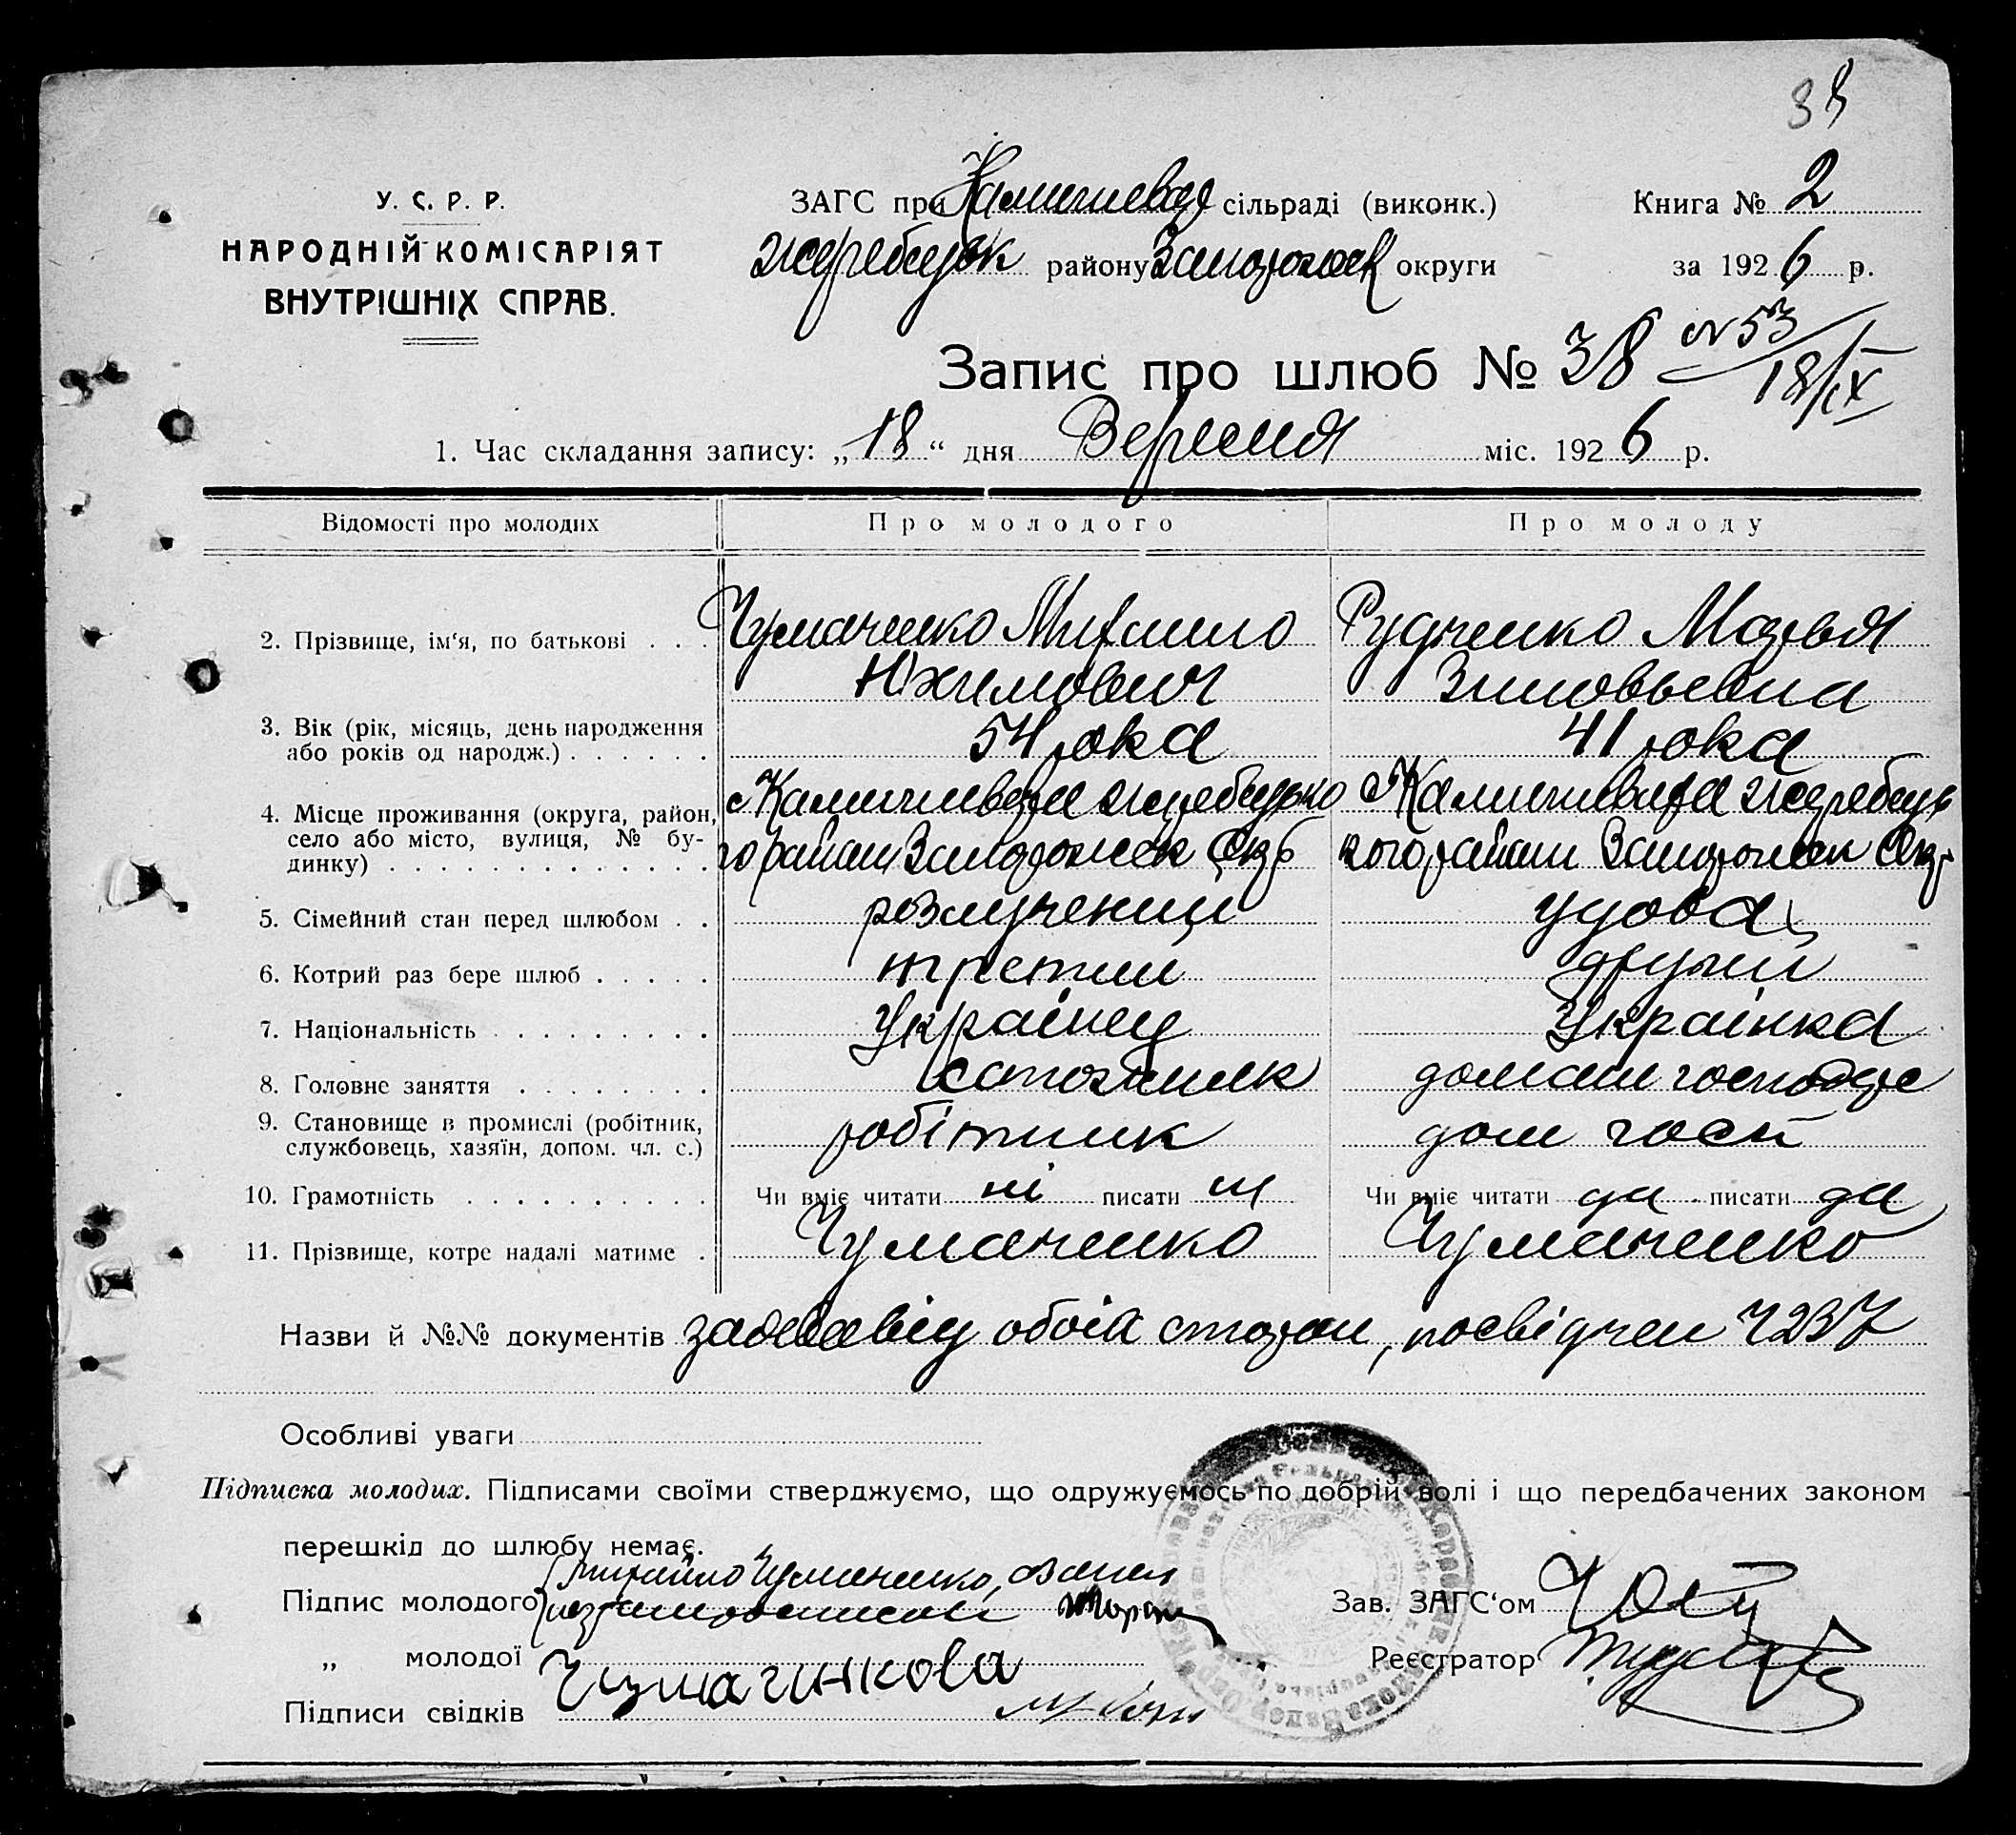 38
У. С. Р. Р.
НАРОДНІЙ КОМІСАРІЯТ
ВНУТРІШНІХ СПРАВ.
ЗАГС при сільраді (виконк.)
Жеребецьк району Запорожск округи
Книга № 2
за 1926 р.
Запис про шлюб № 38 № 53
18/IX
1. Час складання запису: „18“ дня Вересня міс. 1926 р.
Відомості про молодих Про молодого Про молоду
2. Прізвище, ім‘я, по батькові . . . Чумаченко Михаило Рудченко Марья
Юхимович Зиновьевна
3. Вік (рік, місяць, день народження
або років од народж.) . . . . . . 54 рока 41 рока
4. Місце проживання (округа, район, с Камишеваха Жеребецько с Камишеваха Жеребець
село або місто, вулиця, № бу-
динку) . . . . . . . . . . . . . го району Запорожск Окр кого району Запорожск Окр
5. Сімейний стан перед шлюбом . . розлучений удова
6. Котрий раз бере шлюб . . . . . третий другий
7. Національність . . . . . . . . Українец Українка
8. Головне заняття . . . . . . . домаш господар
9. Становище в промислі (робітник,
службовець, хазяїн, допом. чл. с.) робітник дом госп
10. Грамотність . . . . . . . . . . Чи вміє читати ні писати ні Чи вміє читати да писати да
11. Прізвище, котре надалі матиме . Чумаченко Чумаченко
Назви й №№ документів обоіх сторон, посвідчен 4237
Особливі уваги
Підписка молодих. Підписами своїми стверджуємо, що одружуємось по добрій волі і що передбачених законом
перешкід до шлюбу немає.
Підпис молодого Михайло Чумаченко,
„ молодої Чумачинкова
Підписи свідків
Зав. ЗАГС‘ом
Реєстратор